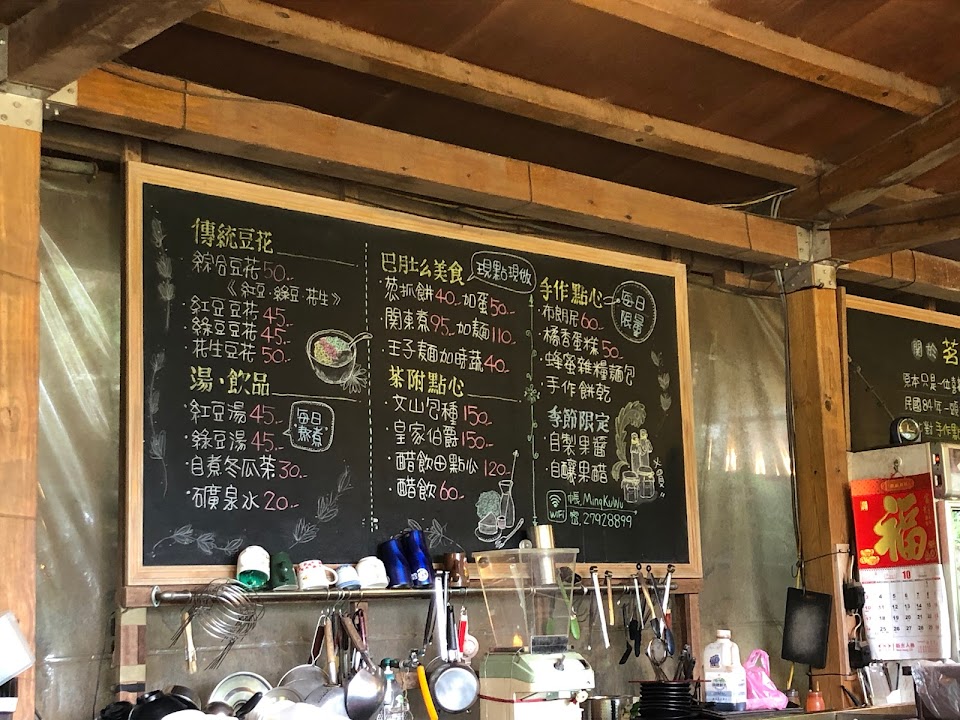 傳統豆花
綜合豆花50
《紅豆·綠豆·花生》
·紅豆豆花45
·綠豆豆花45
·花生豆花50
湯·飲品
·紅豆湯45
·綠豆湯45
每日
熬煮
·自煮冬瓜茶30
·礦泉水20
巴肚么美食
現點現做
·蔥抓餅40 加蛋50
·關東煮95 加麵110
·王子麵加時蔬40
茶附點心
·文山包種150
·皇家伯爵150
·醋飲+點心120
·醋飲60
手作點心
每日
限量
·布朗尼60
·橘香蛋糕50
·蜂蜜雜糧麵包
·手作餅乾
季節限定
·自製果醬
·自釀果醋
WiFi
帳.MingKuWu
密.27928899
關於 茗
原本只是一位
民國84年一
對手作
福
10